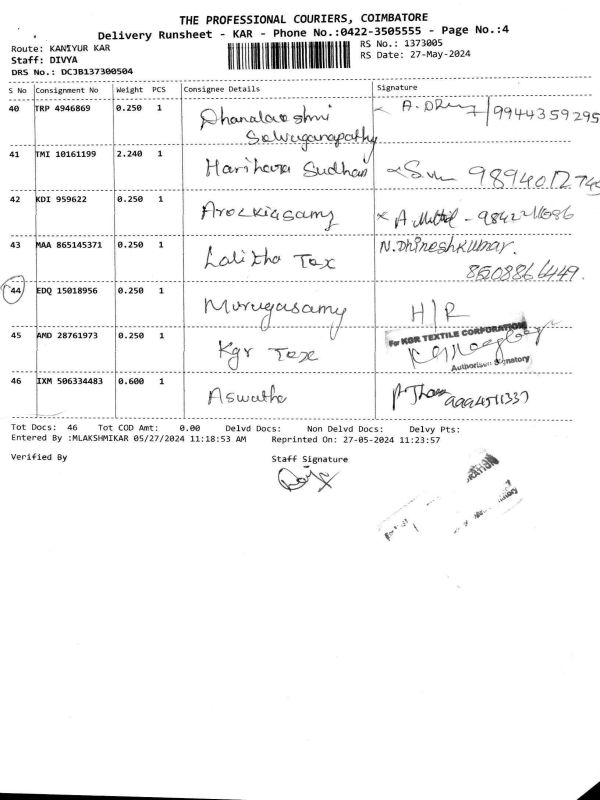 THE PROFESSIONAL COURIERS, COIMBATORE
Delivery Runsheet - KAR - Phone No.:0422-3505555 - Page No.:4
Route: KANIYUR KAR
RS No.: 1373005
Staff: DIVYA
RS Date: 27-May-2024
DRS No.: DCJB137300504
S No Consignment No Weight PCS Consignee Details Signature
40 TRP 4946869 0.250 1 Dhanalakshmi 9944359295
Selvuganapathy
41 TMI 10161199 2.240 1 Harihara Sudhan
42 KDI 959622 0.250 1 Arockiasamy
43 MAA 865145371 0.250 1 Lalitha Tex N. Dhineshkumar.
8508866449.
44 EDQ 15018956 0.250 1 Murugasamy H/R
45 AMD 28761973 0.250 1 Kgr Tex For KGR TEXTILE CORPORATION
Authorised Signatory
46 IXM 506334483 0.600 1 Aswatha
Tot Docs: 46 Tot COD Amt: 0.00 Delvd Docs: Non Delvd Docs: Delvy Pts:
Entered By :MLAKSHMIKAR 05/27/2024 11:18:53 AM Reprinted On: 27-05-2024 11:23:57
Verified By Staff Signature